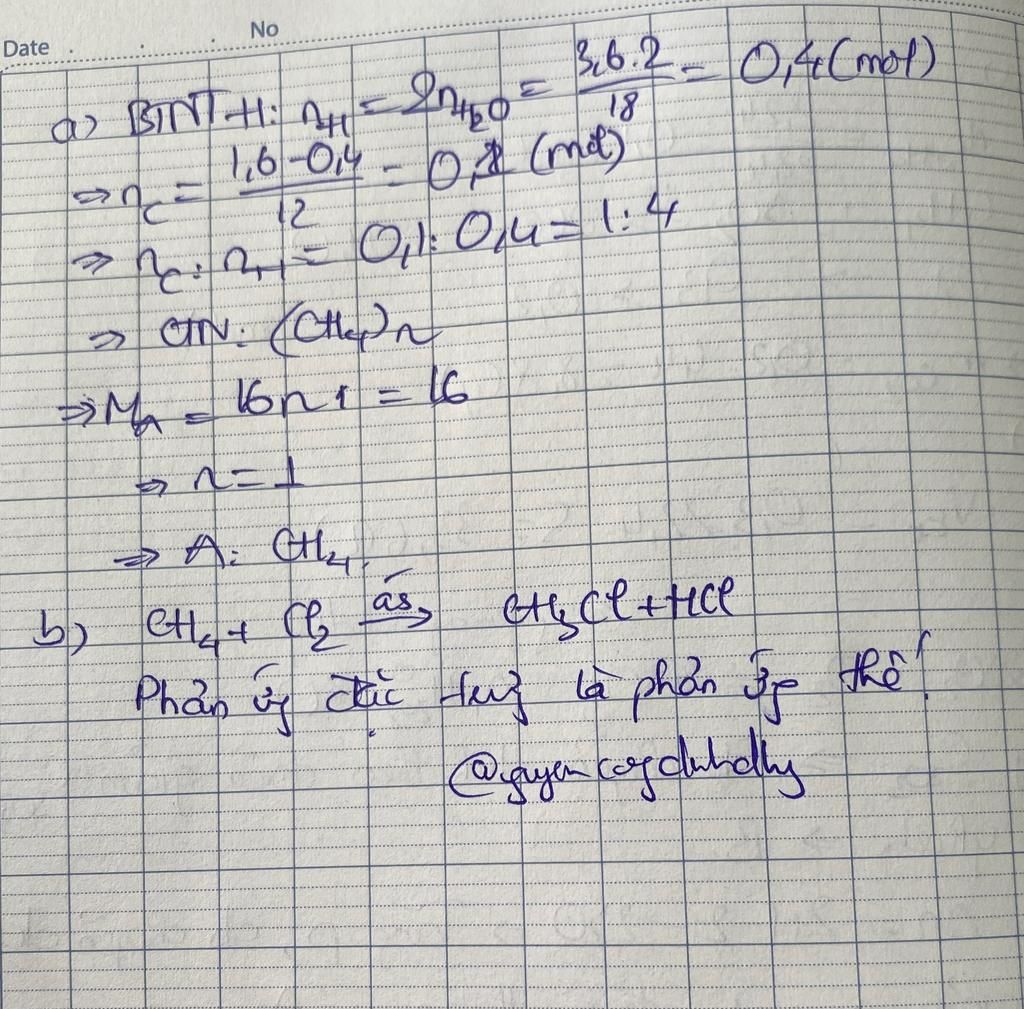 Date . . . No
a) BTNT H: nH = 2nH2O = 3,6.2/18 = 0,4 (mol)
=> nC = 1,6-0,4/12 = 0,1 (mol)
=> nC : nH = 0,1 : 0,4 = 1 : 4
=> CTN: (CH4)n
=> MA = 16n = 16
=> n = 1
=> A: CH4.
b) CH4 + Cl2 ás→ CH3Cl + HCl
Phản ứng đặc trưng là phản ứng thế!